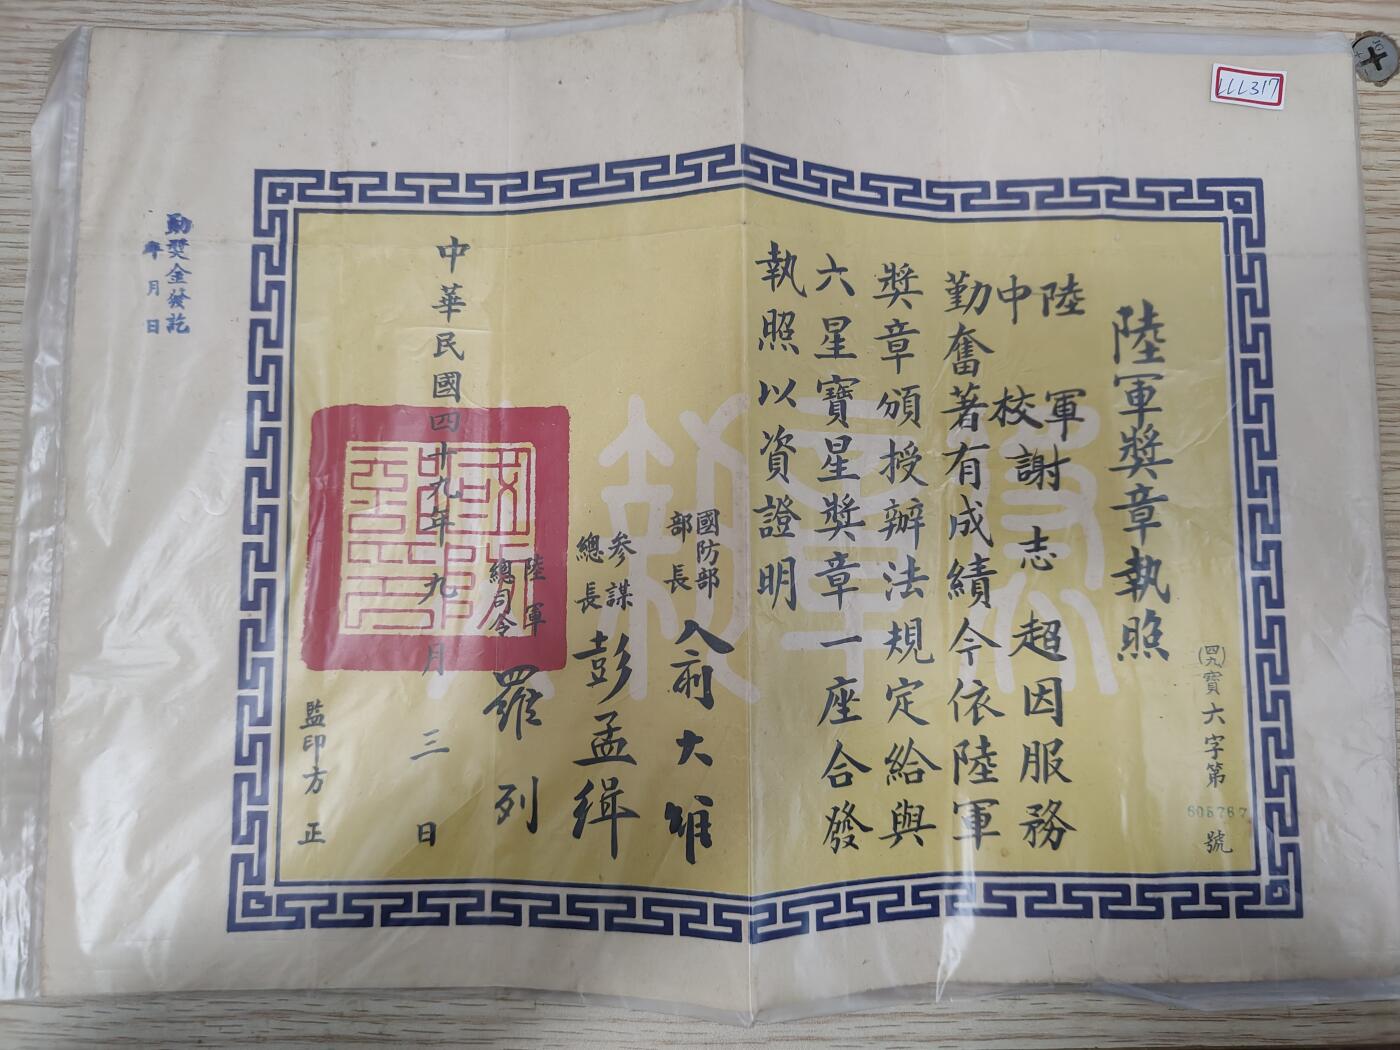 LLL317
陸軍獎章執照
(四九)寶六字第605767號
陸軍
中校謝志超因服務
勤奮著有成績今依陸軍
獎章頒授辦法規定給與
六星寶星獎章一座合發
執照以資證明
國防部
部長俞大維
參謀
總長彭孟緝
陸軍
總司令羅列
中華民國四十九年九月三日
監印方正
勳獎金發訖
年月日